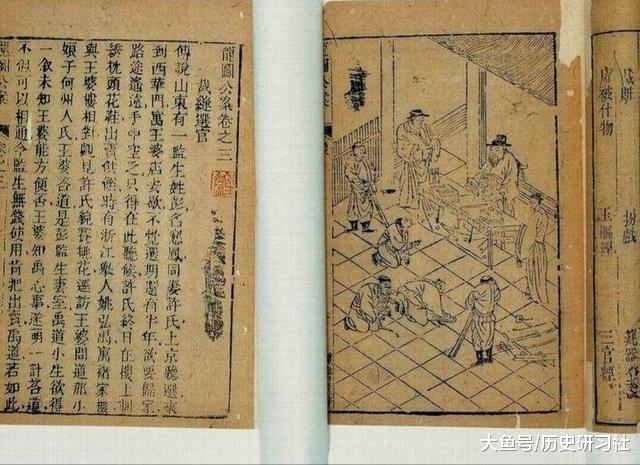 房被什物
扮戲
玉樞經
三官經
圖公案
龍圖公案卷之三
裁縫選官
傳說山東有一監生姓彭名應鳳同妻許氏上京聽選來
到西華門寓王婆店安歇不覺選期還有半年欲要歸家
路途遙遠手中空乏只得在此聽候許氏終日在樓上刺
綉枕頭花鞋出賣供饌時有浙江舉人姚弘禹寓褚家樓
與王婆樓相對覷見許氏貌賽桃花遂訪王婆問道那小
娘子何州人氏王婆答道是彭監生妻室禹道小生欲得
一敘未知王婆能方便否王婆知禹心事遂萌一計答道
不但可以相通今監生無錢使用肯把出賣禹道若如此
龍圖公案
卷之三
大鱼号/历史研习社